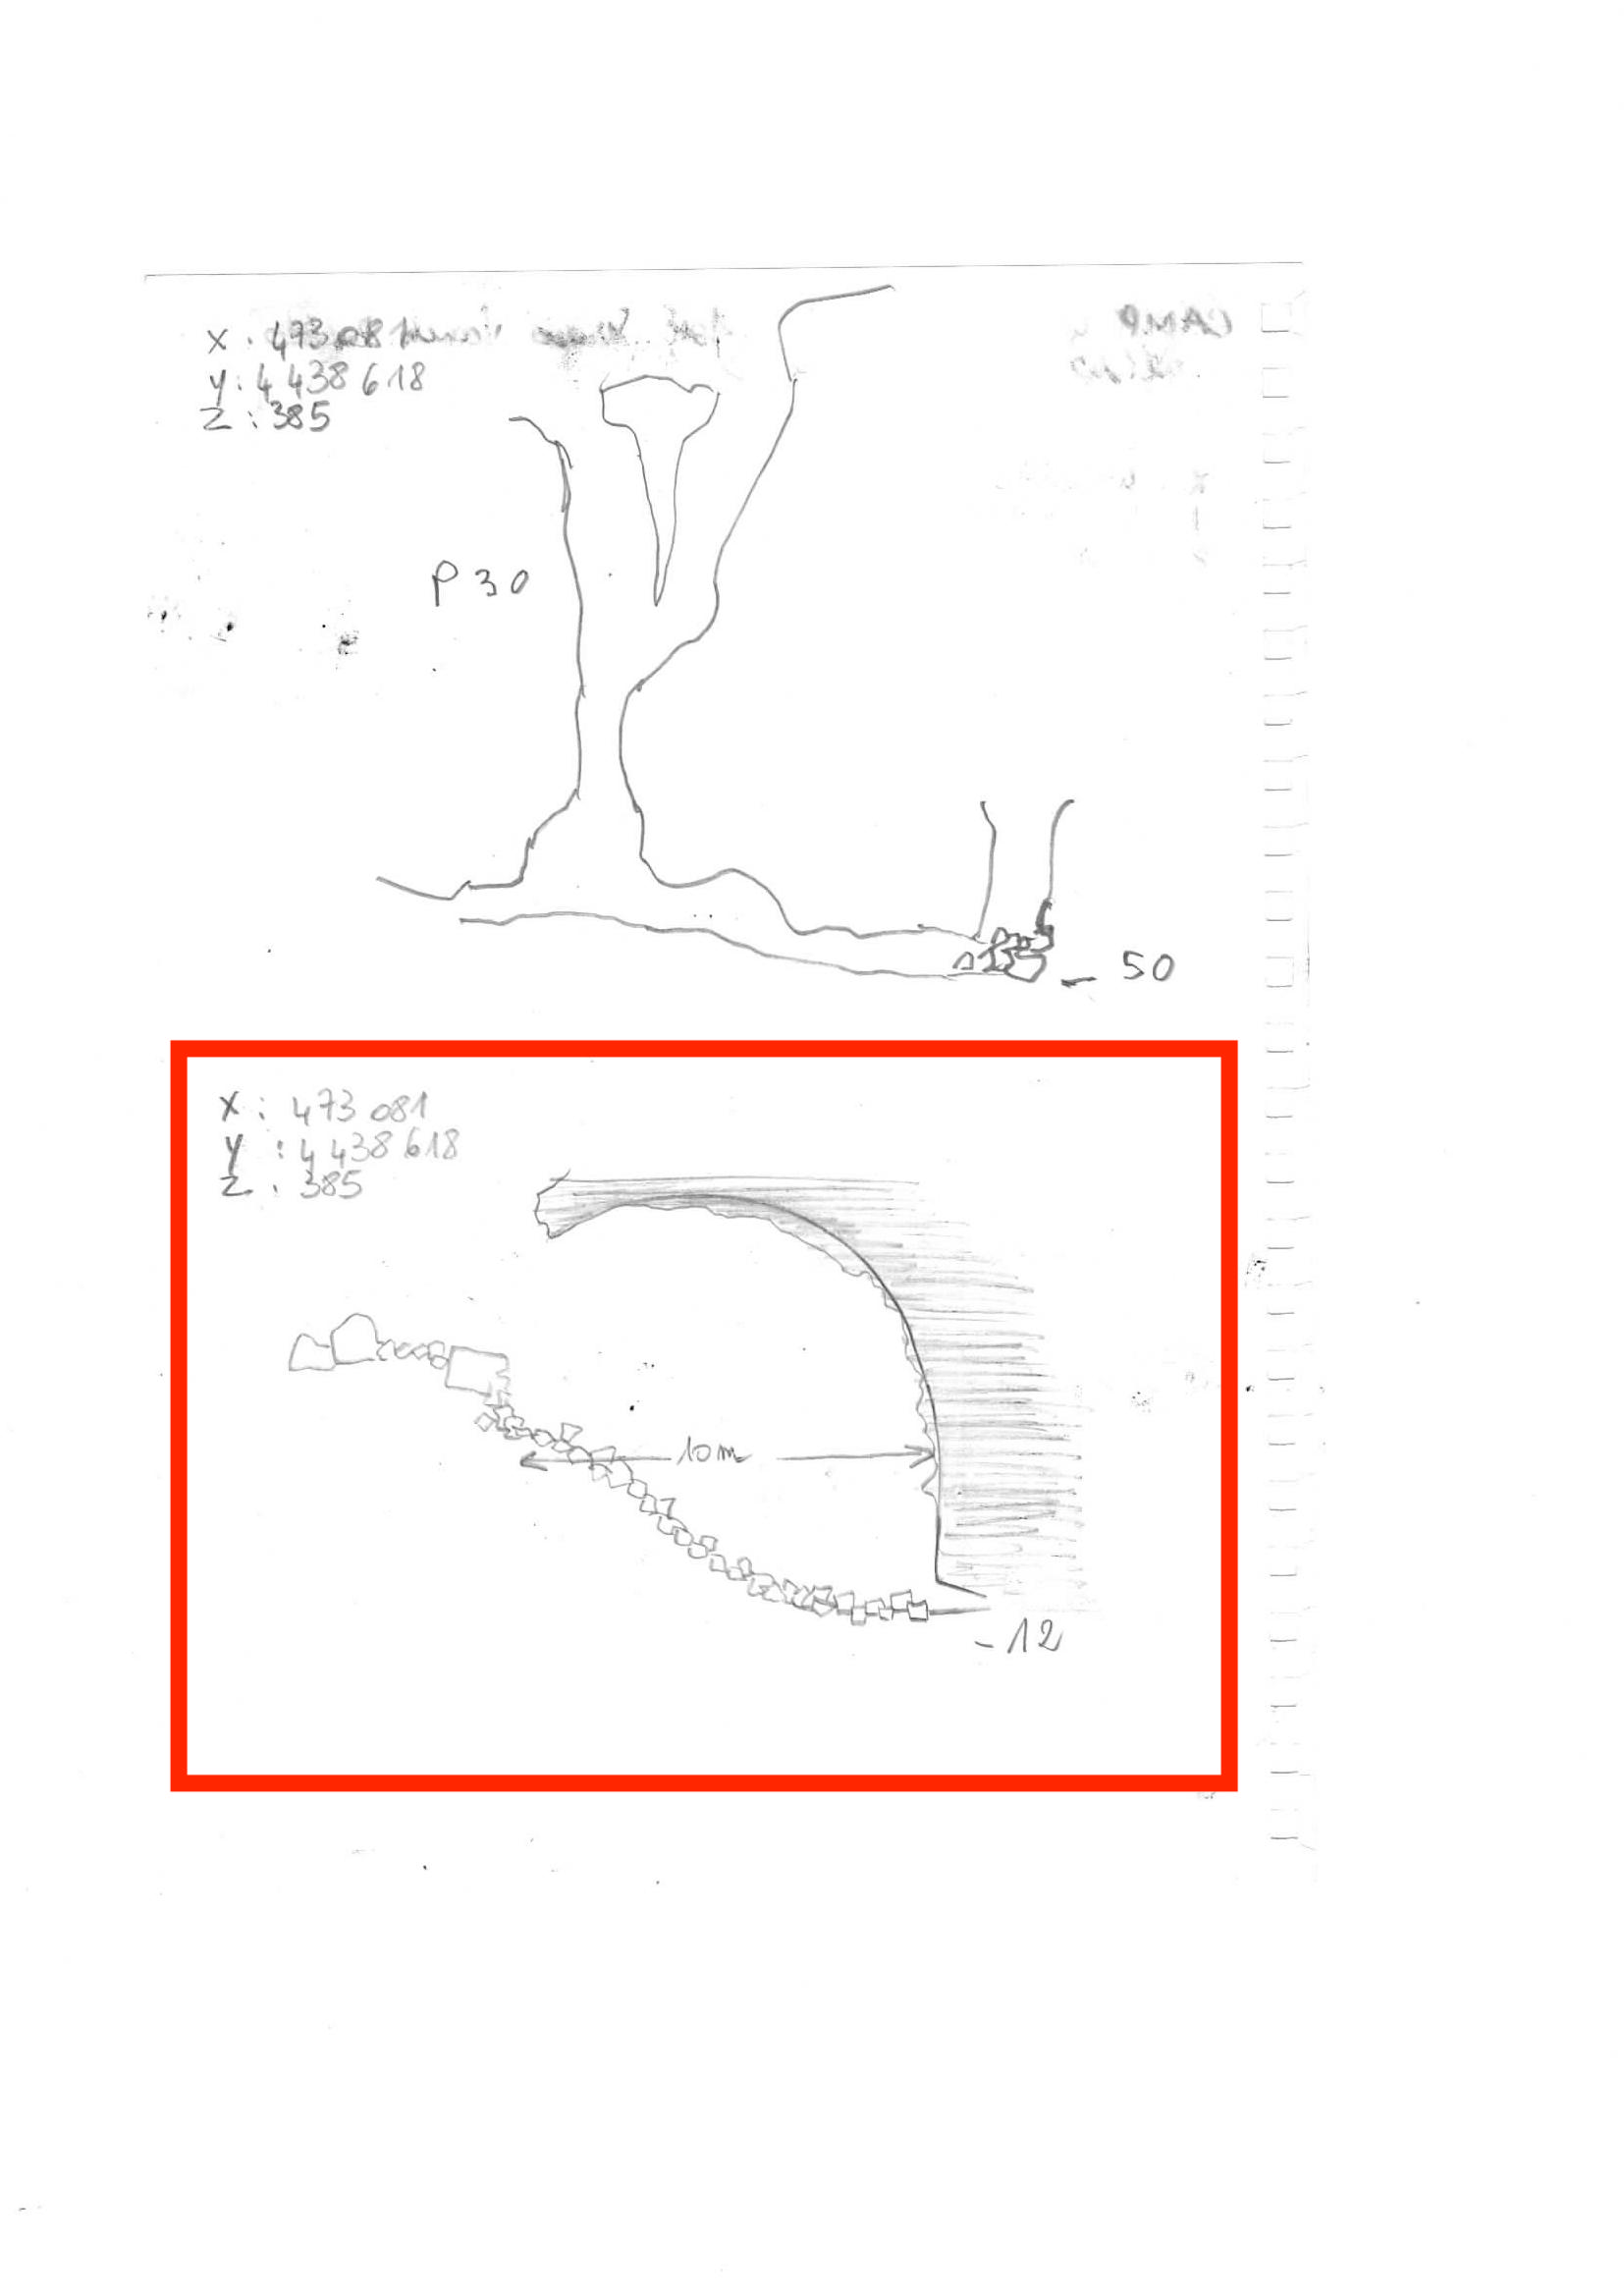 X : 473 081
y : 4 438 618
Z : 385
P 30
- 50
X : 473 081
y : 4 438 618
Z : 385
10 m
- 12